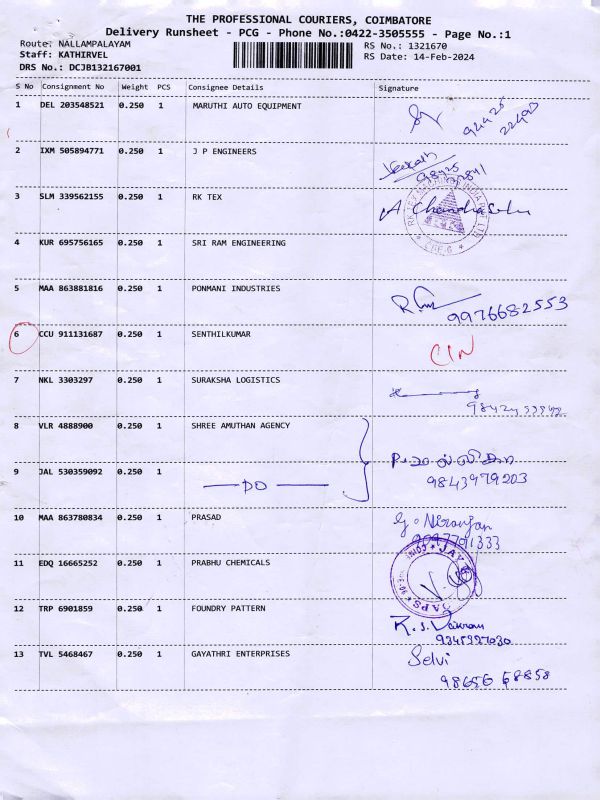 THE PROFESSIONAL COURIERS, COIMBATORE
Delivery Runsheet - PCG - Phone No.:0422-3505555 - Page No.:1
Route: NALLAMPALAYAM
RS No.: 1321670
Staff: KATHIRVEL
RS Date: 14-Feb-2024
DRS No.: DCJB132167001
S No Consignment No Weight PCS Consignee Details Signature
1 DEL 203548521 0.250 1 MARUTHI AUTO EQUIPMENT
2 IXM 505894771 0.250 1 J P ENGINEERS
3 SLM 339562155 0.250 1 RK TEX
4 KUR 695756165 0.250 1 SRI RAM ENGINEERING
5 MAA 863881816 0.250 1 PONMANI INDUSTRIES
9976682553
6 CCU 911131687 0.250 1 SENTHILKUMAR CIN
7 NKL 3303297 0.250 1 SURAKSHA LOGISTICS
8 VLR 4888900 0.250 1 SHREE AMUTHAN AGENCY
9 JAL 530359092 0.250 1 DO
9843979203
10 MAA 863780834 0.250 1 PRASAD G. Niranjan
11 EDQ 16665252 0.250 1 PRABHU CHEMICALS
12 TRP 6901859 0.250 1 FOUNDRY PATTERN
13 TVL 5468467 0.250 1 GAYATHRI ENTERPRISES Selvi
98656 68858